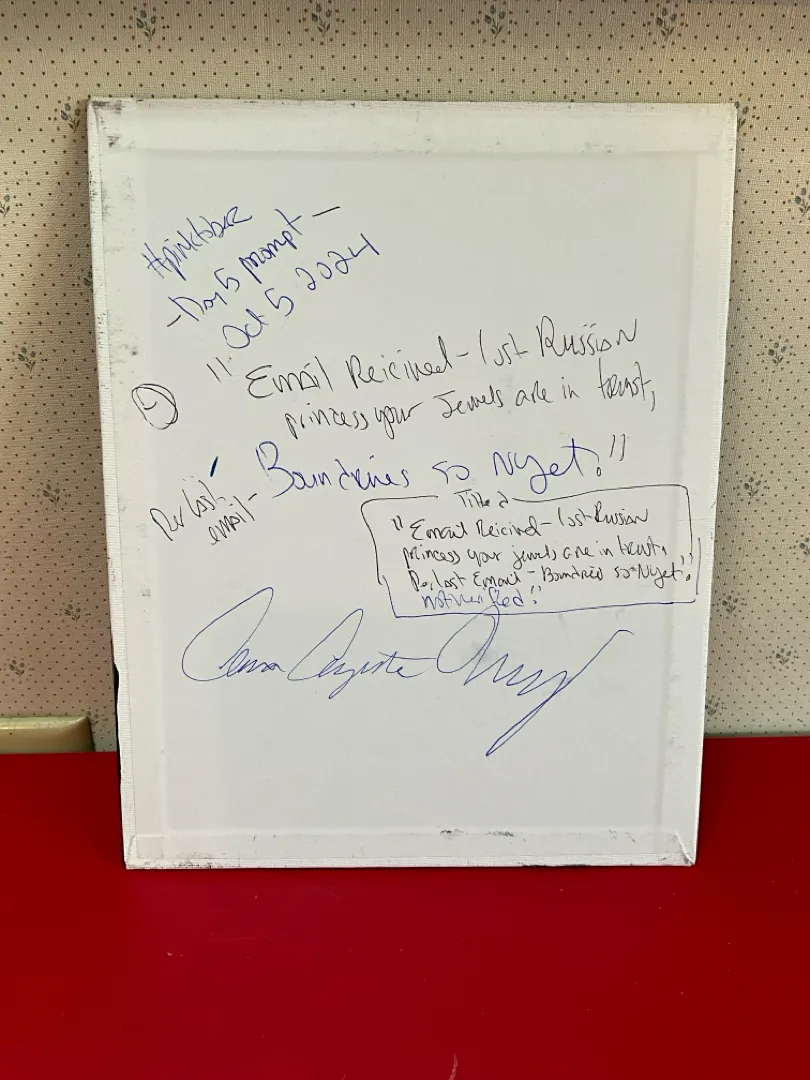 #pinktober
- Day 5 prompt -
Oct 5 2024
" Email Reicived - lost Russian
princess your Jewels are in trust,
Per last
email -
Boundries so Nyet!"
Title
"Email Reicived - lost Russian
princess your jewels are in trust,
Per last Email - Boundries so Nyet!
not verified!"